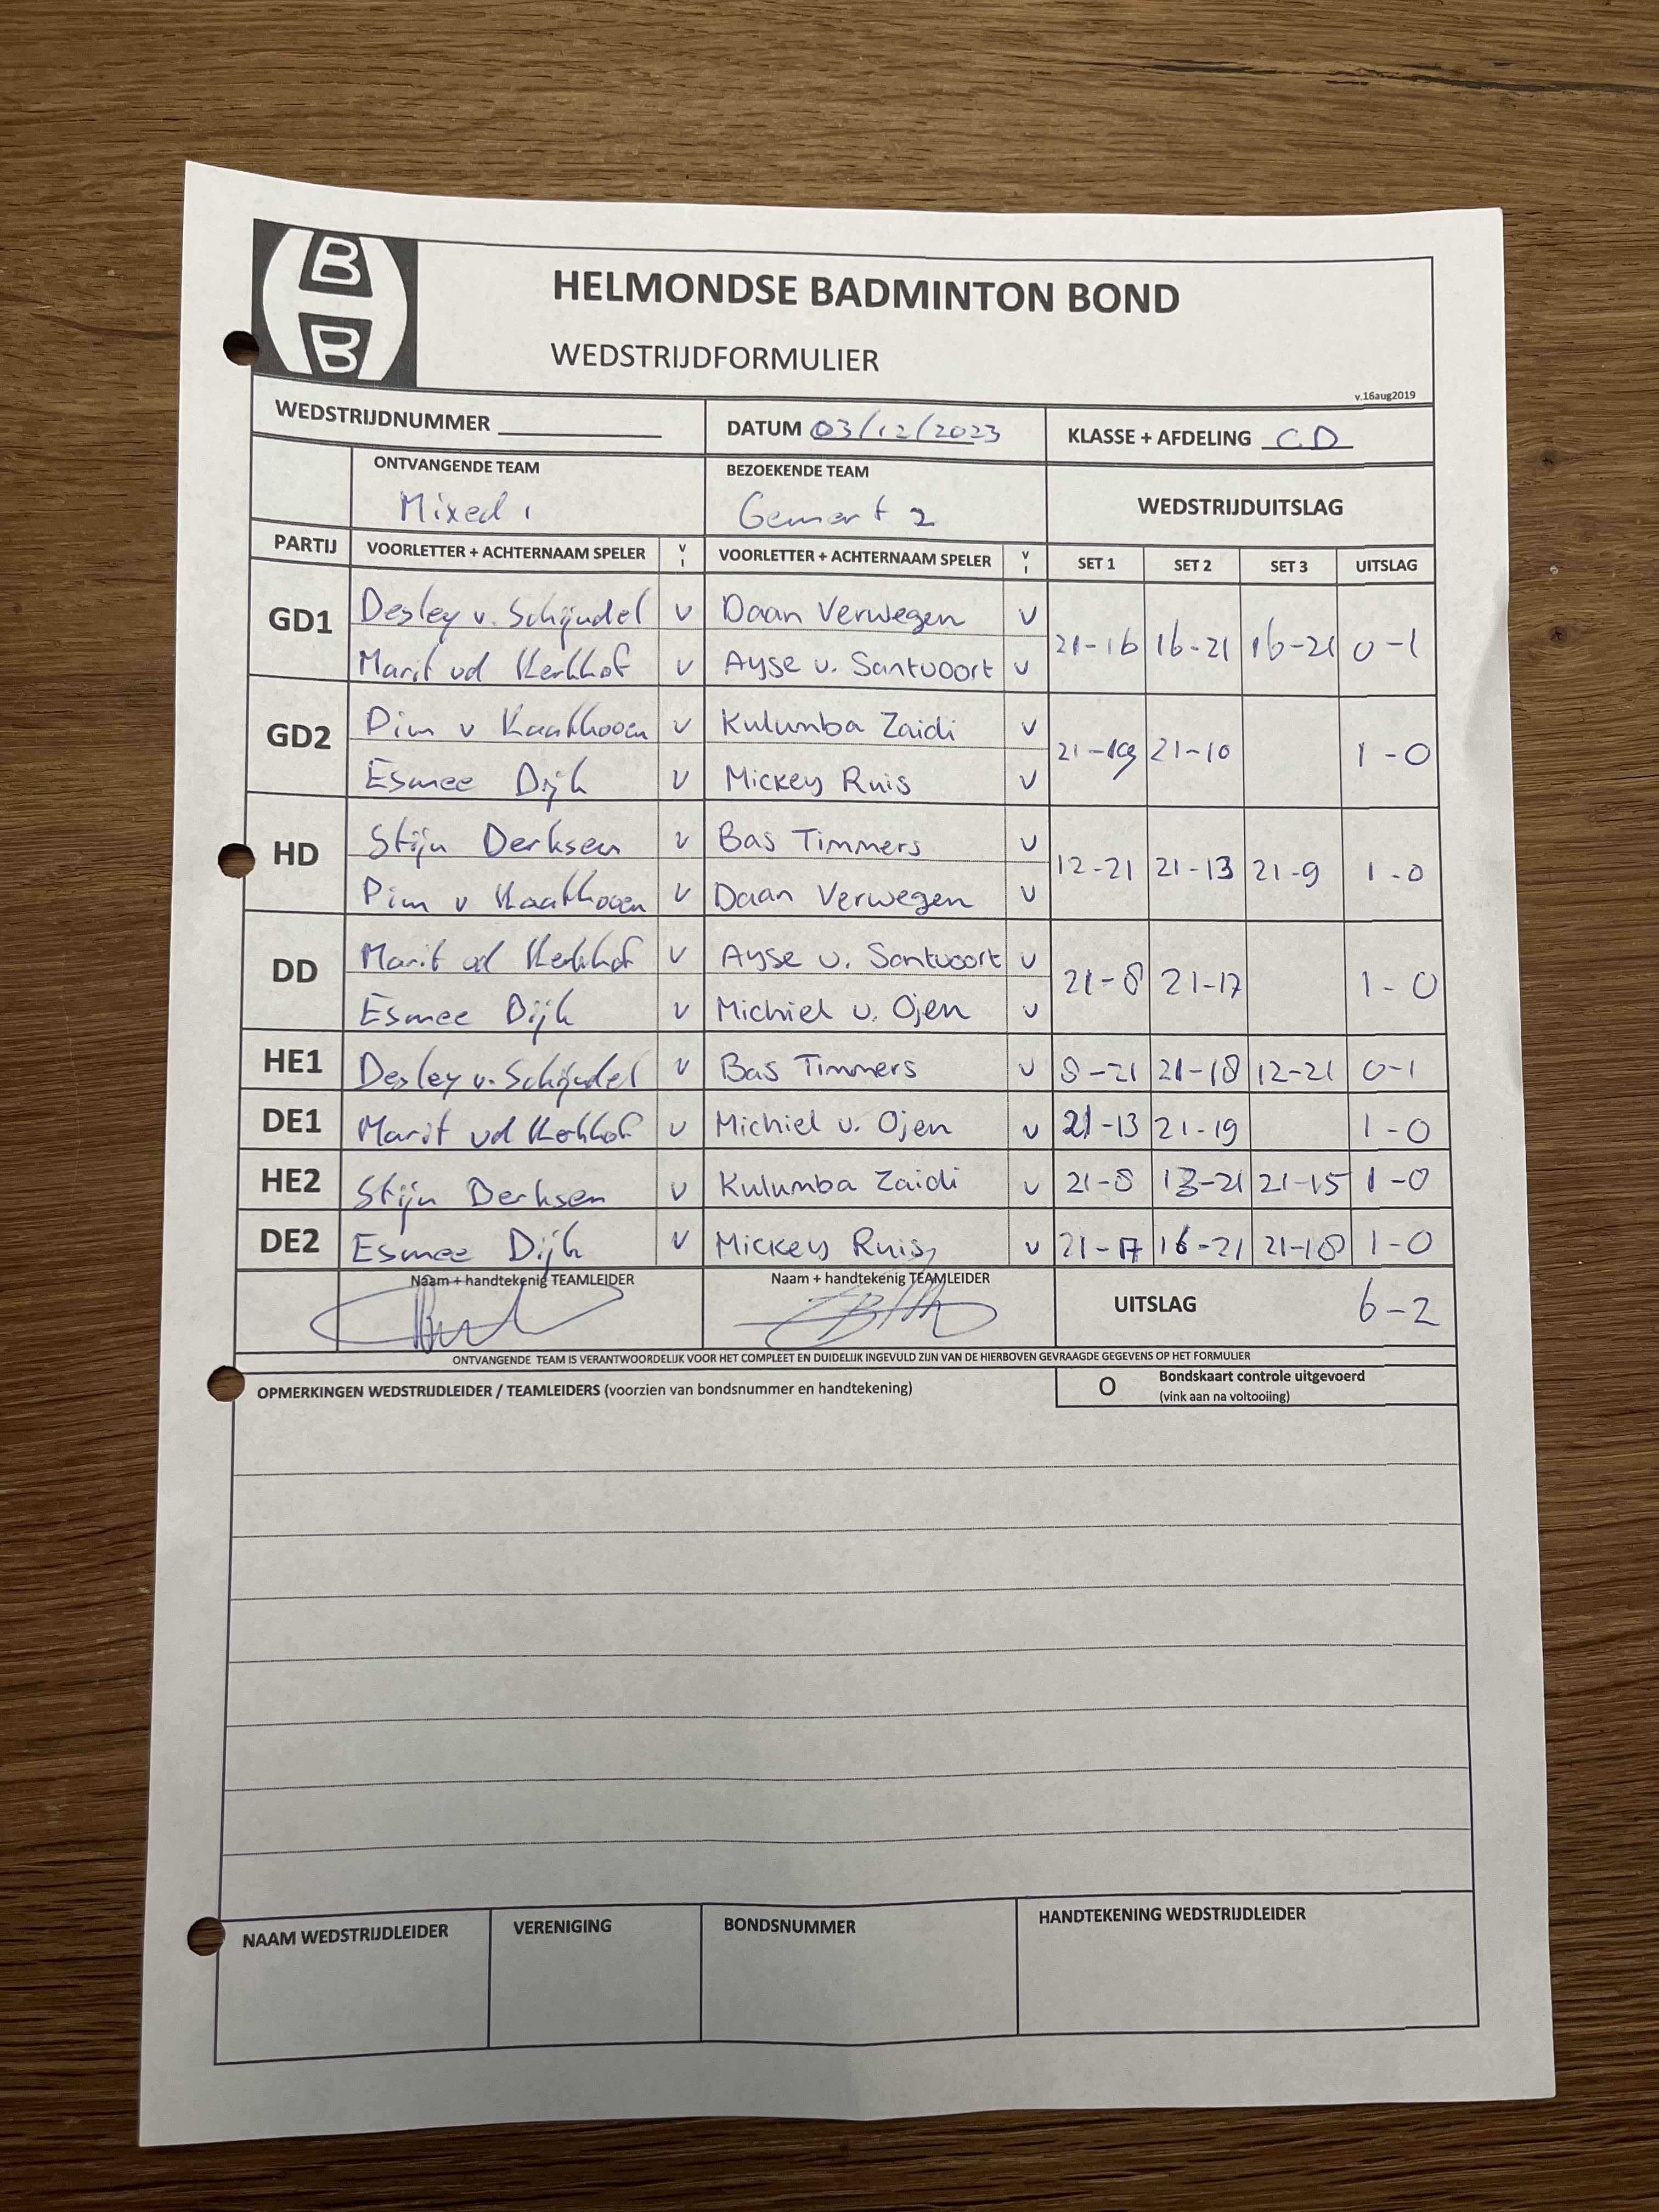 B
B
HELMONDSE BADMINTON BOND
WEDSTRIJDFORMULIER
v.16aug2019
WEDSTRIJDNUMMER DATUM 03/12/2023 KLASSE + AFDELING C.D
ONTVANGENDE TEAM BEZOEKENDE TEAM
Mixed 1 Gemert 2 WEDSTRIJDUITSLAG
PARTIJ VOORLETTER + ACHTERNAAM SPELER V I VOORLETTER + ACHTERNAAM SPELER V I SET 1 SET 2 SET 3 UITSLAG
Desley v. Schijndel v Daan Verwegen v
GD1 21-16 16-21 16-21 0-1
Marit vd Kerkhof v Ayse v. Santvoort v
Pim v Kaathoven v Kulumba Zaidi v
GD2 21-19 21-10 1-0
Esmee Dijk v Mickey Ruis v
Stijn Derksen v Bas Timmers v
HD 12-21 21-13 21-9 1-0
Pim v Kaathoven v Daan Verwegen v
Marit vd Kerkhof v Ayse v. Santvoort v
DD 21-8 21-17 1-0
Esmee Dijk v Michiel v. Ojen v
HE1 Desley v. Schijndel v Bas Timmers v 8-21 21-18 12-21 0-1
DE1 Marit vd Kerkhof v Michiel v. Ojen v 21-13 21-19 1-0
HE2 Stijn Derksen v Kulumba Zaidi v 21-8 13-21 21-15 1-0
DE2 Esmee Dijk v Mickey Ruis v 21-17 16-21 21-18 1-0
Naam + handtekenig TEAMLEIDER Naam + handtekenig TEAMLEIDER
UITSLAG 6-2
ONTVANGENDE TEAM IS VERANTWOORDELIJK VOOR HET COMPLEET EN DUIDELIJK INGEVULD ZIJN VAN DE HIERBOVEN GEVRAAGDE GEGEVENS OP HET FORMULIER
OPMERKINGEN WEDSTRIJDLEIDER / TEAMLEIDERS (voorzien van bondsnummer en handtekening) O Bondskaart controle uitgevoerd
(vink aan na voltooiing)
NAAM WEDSTRIJDLEIDER VERENIGING BONDSNUMMER HANDTEKENING WEDSTRIJDLEIDER